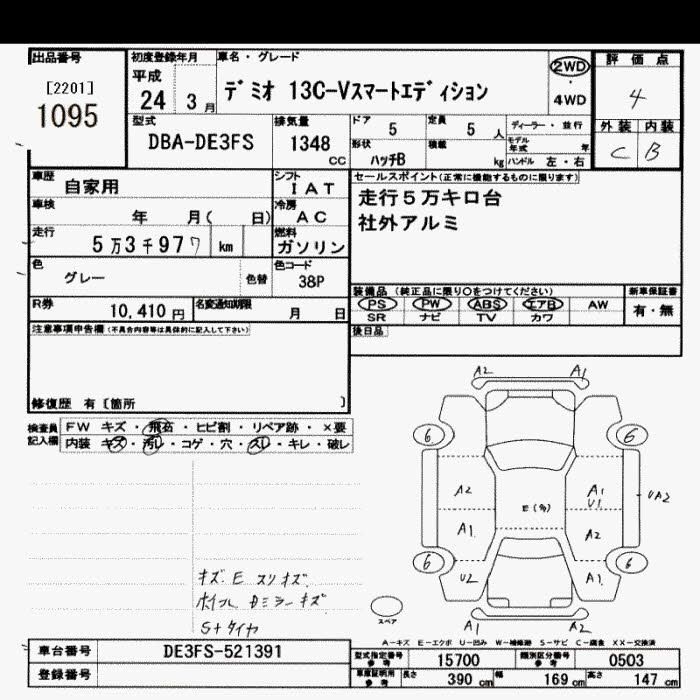 出品番号 初度登録年月 車名・グレード 評価点
[2201] 平成 デミオ 13C-Vスマートエディション 2WD
1095 24 3月 ・ 4WD 4
型式 排気量 ドア 5 定員 5 人 ディーラー・並行 外装 内装
DBA-DE3FS 1348 CC 形状 ハッチB 積載 kg モデル年式 年 ハンドル 左・右 C B
車歴 自家用 シフト IAT セールスポイント(正常に機能するものに限ります)
車検 年 月( 日) 冷房 AC 走行5万キロ台
走行 5万3千977 km 燃料 ガソリン 社外アルミ
色 グレー 色替 色コード 38P
装備品 (純正品に限り○をつけてください) 新車保証書
R券 10,410円 名変通知期限 月 日 PS PW ABS エアB AW 有・無
SR ナビ TV カワ
注意事項申告欄(不具合内容等は具体的に記入して下さい) 後日品
修復歴 有〔箇所 〕
検査員 FW キズ・飛石・ヒビ割・リペア跡・×要
記入欄 内装 キズ・汚レ・コゲ・穴・スレ・キレ・破レ
A2 A1
6 6
A2 A1 U1 UA2
E(多)
A1 A2
6 6
U2 A1
A1 A2
スペア
キズ E スリキズ
ホイル Dミラーキズ
S+タイヤ
A-キズ E-エクボ U-凹み W-補修跡 S-サビ C-腐食 XX-交換済
車台番号 DE3FS-521391 型式指定番号 参考 15700 類別区分番号 参考 0503
登録番号 車庫証明用 参考 長さ 390 cm 幅 169 cm 高さ 147 cm